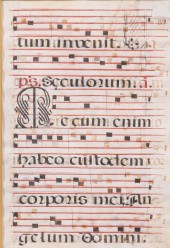 tum invenit.
ps. Seculorum. a.
Mecum enim
habeo custodem
corporis mei, An
gelum Domini.